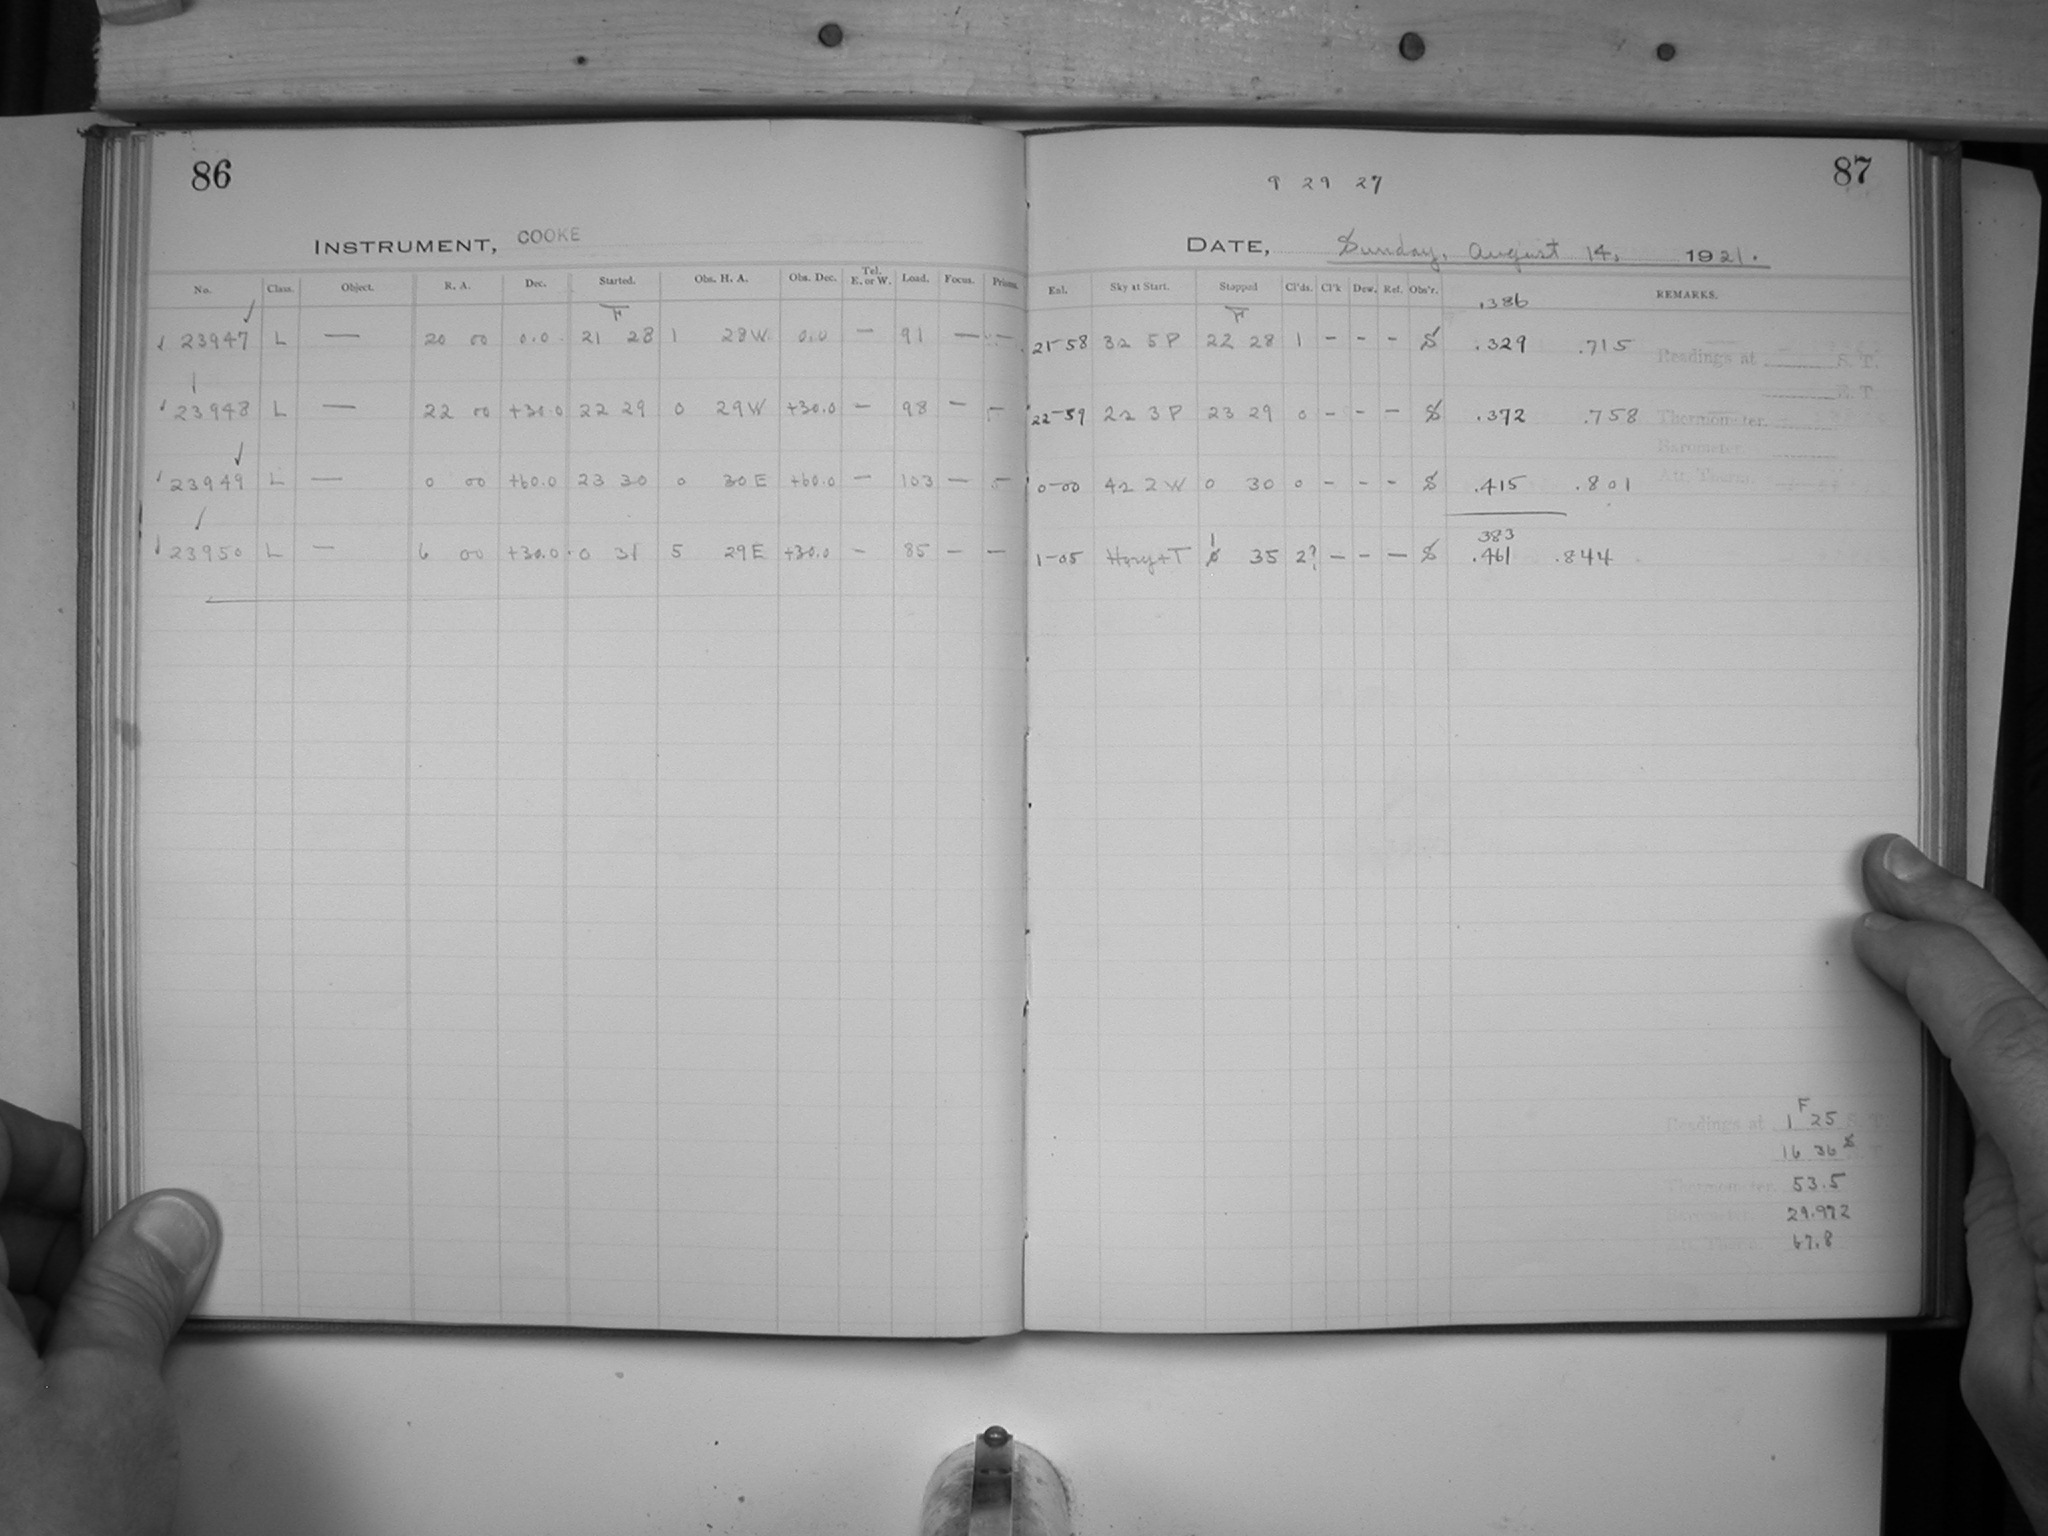 86
INSTRUMENT, COOKE
No. Class. Object. R. A. Dec. Started. Obs. H. A. Obs. Dec. Tel. E. or W. Load. Focus. Prisms.
F
23947 L — 20 00 0.0 21 28 1 28W 0.0 — 91 — —
23948 L — 22 00 +30.0 22 29 0 29W +30.0 — 98 — –
23949 L — 0 00 +60.0 23 30 0 30E +60.0 — 103 — –
23950 L — 6 00 +30.0 0 35 5 29E +30.0 – 85 – —
87
9 29 27
DATE, Sunday, August 14, 1921.
Exl. Sky at Start. Stopped Cl'ds. Cl'k Dew. Ref. Obs'r. REMARKS.
.386
F
21-58 32 5P 22 28 1 – – – S .329 .715
Readings at S. T.
S. T
22-59 22 3P 23 29 0 – – – S .372 .758
Thermometer.
Barometer.
0-00 42 2W 0 30 0 – – – S .415 .801
Att. Therm.
383
1-05 Hazy+T 1 35 2? – – – S .461 .844
F
Readings at 1 25 S. T.
16 36 S
Thermometer. 53.5
29.972
67.8